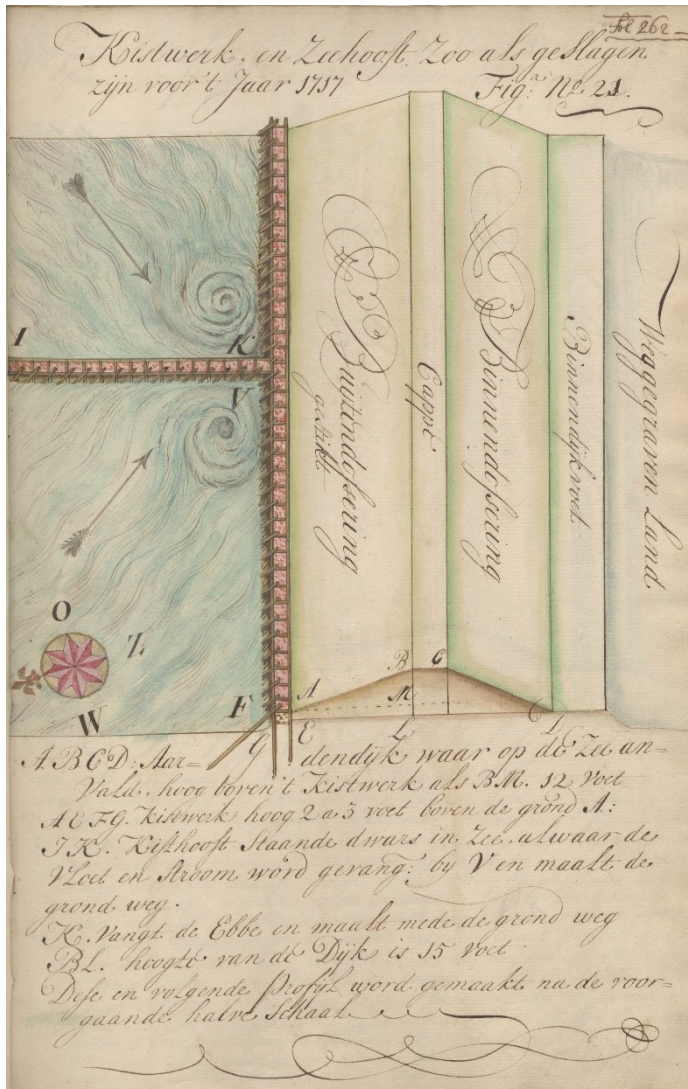 fol 262
Kistwerk, en Zeehooft, Zoo als geslagen
zijn voor't Jaar 1717 Figa: No 21.
I
K
V
O
Z
W
F
Buijtendossering
gestikt
Cappe
Binnendossering
Binnendijkvoet
Weggegraven Land
A
B
C
M
G
E
L
D
A B C D: Aar= dendijk waar op de Zee an=
Vald. hoog boven't Kistwerk als B M. 12 Voet
A E F G. kistwerk hoog 2 a 3 voet boven de grond A:
I K. Kisthooft Staande dwars in Zee, alwaar de
Vloet en Stroom word gevang: by V en maalt de
grond weg.
K. Vangt de Ebbe en maalt mede de grond weg
B L. hoogte van de Dijk is 15 voet
Dese en volgende Profijl word gemaakt na de voor=
gaande halve Schaal